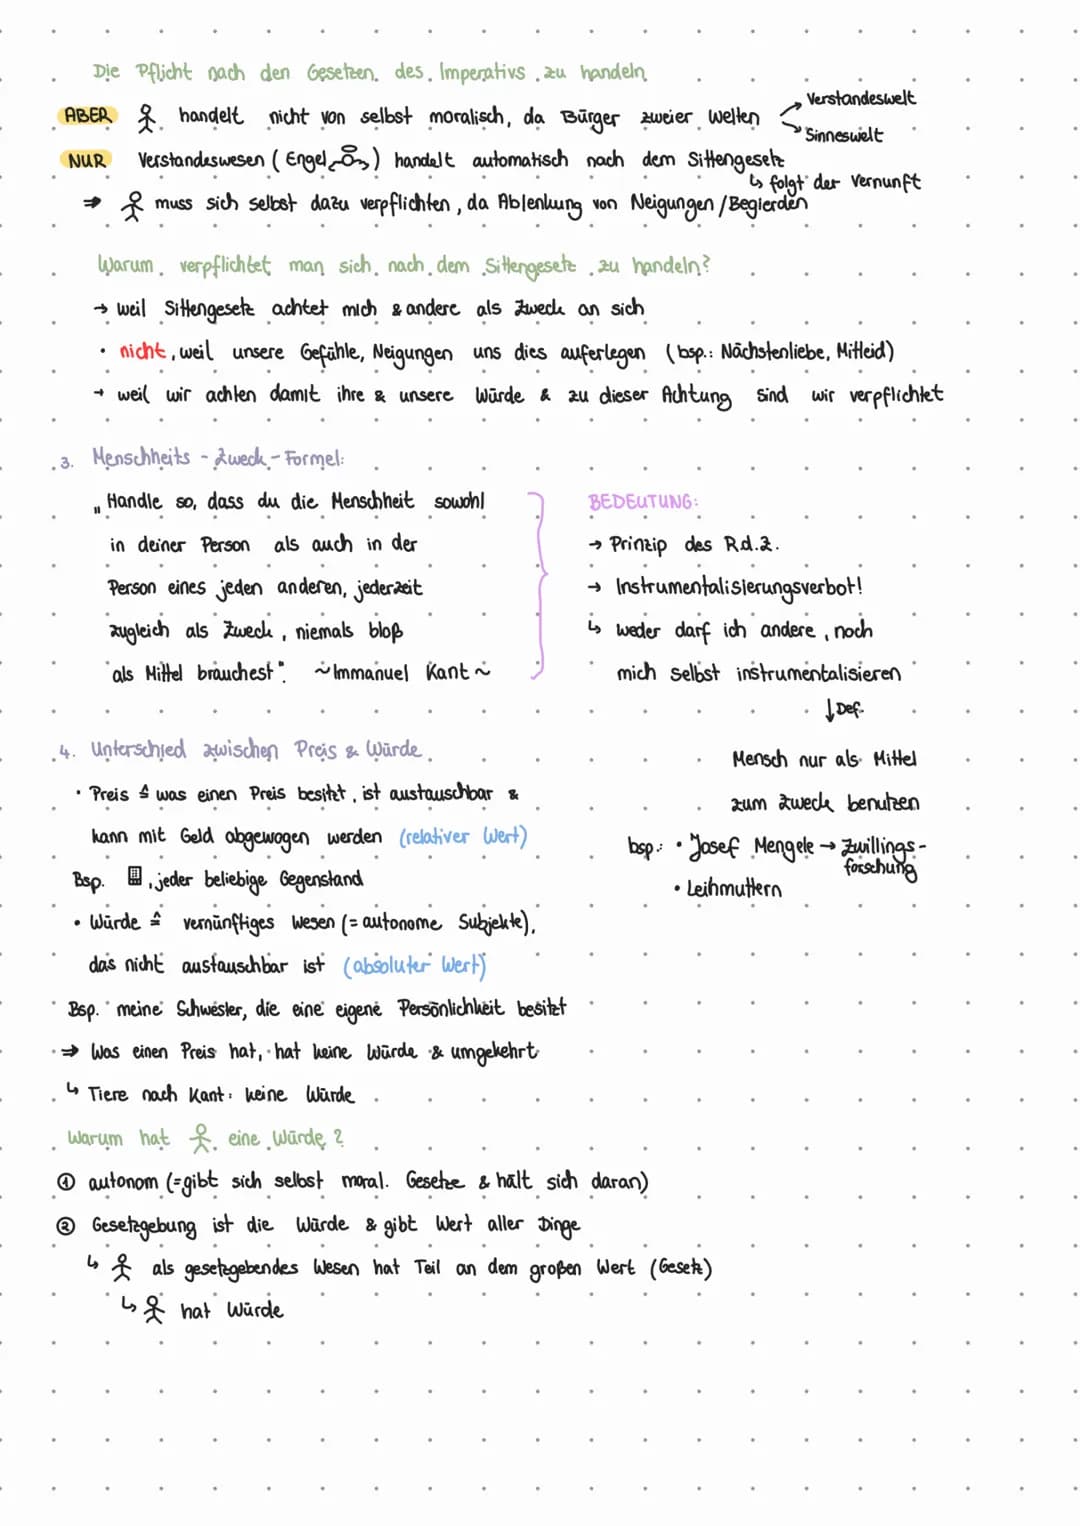 Die Pflicht nach den Gesetzen des Imperativs zu handeln
ABER handelt nicht von selbst moralisch, da Bürger zweier Welten
Verstandeswelt
Sinneswelt
NUR Verstandeswesen (Engel) handelt automatisch nach dem Sittengesetz
↳ folgt der Vernunft
⇒ muss sich selbst dazu verpflichten, da Ablenkung von Neigungen / Begierden
Warum verpflichtet man sich nach dem Sittengesetz zu handeln?
→ weil Sittengesetz achtet mich & andere als Zweck an sich
• nicht, weil unsere Gefühle, Neigungen uns dies auferlegen (bsp.: Nächstenliebe, Mitleid)
→ weil wir achten damit ihre & unsere Würde & zu dieser Achtung sind wir verpflichtet
3. Menschheits-Zweck-Formel:
„Handle so, dass du die Menschheit sowohl
in deiner Person als auch in der
Person eines jeden anderen, jederzeit
zugleich als Zweck, niemals bloß
als Mittel brauchest“. ~Immanuel Kant~
BEDEUTUNG:
→ Prinzip des R.d.Z.
→ Instrumentalisierungsverbot!
↳ weder darf ich andere, noch
mich selbst instrumentalisieren
↓ Def.
Mensch nur als Mittel
zum Zweck benutzen
bsp.: • Josef Mengele → Zwillings-
forschung
• Leihmuttern
4. Unterschied zwischen Preis & Würde
• Preis ≙ was einen Preis besitzt, ist austauschbar &
kann mit Geld abgewogen werden (relativer Wert)
Bsp. , jeder beliebige Gegenstand
• Würde ≙ vernünftiges Wesen (= autonome Subjekte),
das nicht austauschbar ist (absoluter Wert)
Bsp. meine Schwester, die eine eigene Persönlichkeit besitzt
⇒ Was einen Preis hat, hat keine Würde & umgekehrt
↳ Tiere nach Kant: keine Würde
Warum hat eine Würde?
① autonom (=gibt sich selbst moral. Gesetze & hält sich daran)
② Gesetzgebung ist die Würde & gibt Wert aller Dinge
↳ als gesetzgebendes Wesen hat Teil an dem großen Wert (Gesetz)
↳ hat Würde